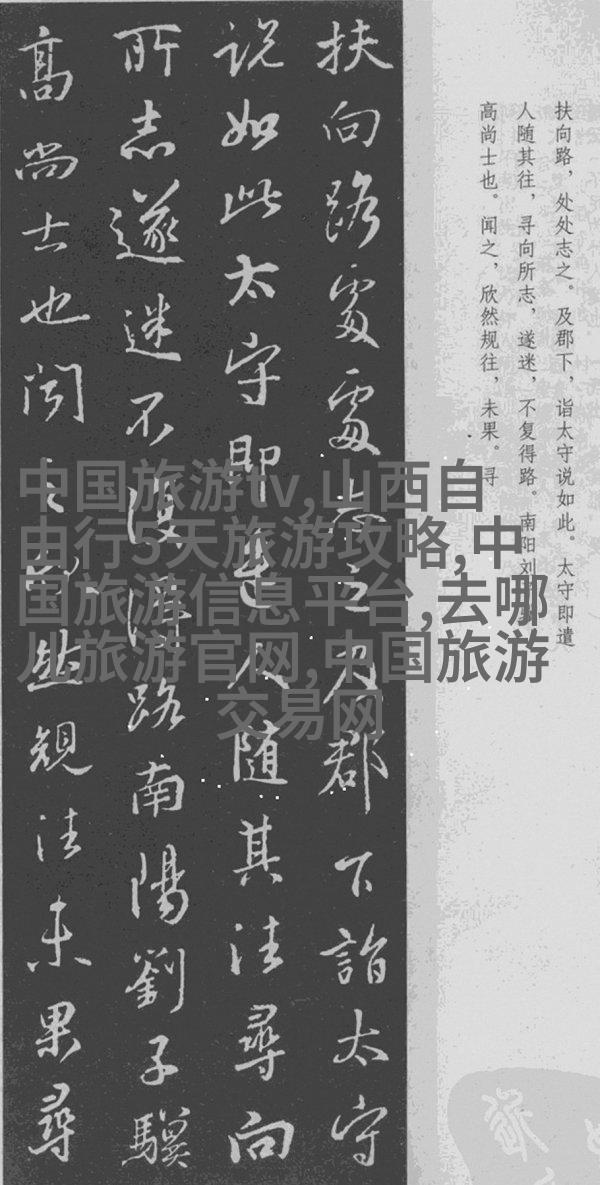 扶向路處處志之及郡下詣太守
说如此太守即遣人随其往尋向
所志遂迷不復得路南陽劉子驥
高尚士也闻之欣然規往未果尋
扶向路，处处志之。及郡下，诣太守说如此。太守即遣
人随其往，寻向所志，遂迷，不复得路。南阳刘子骥，
高尚士也。闻之，欣然规往，未果。寻
中国旅游tv,山西自
由行5天旅游攻略,中
国旅游信息平台,去哪
儿旅游官网,中国旅游
交易网